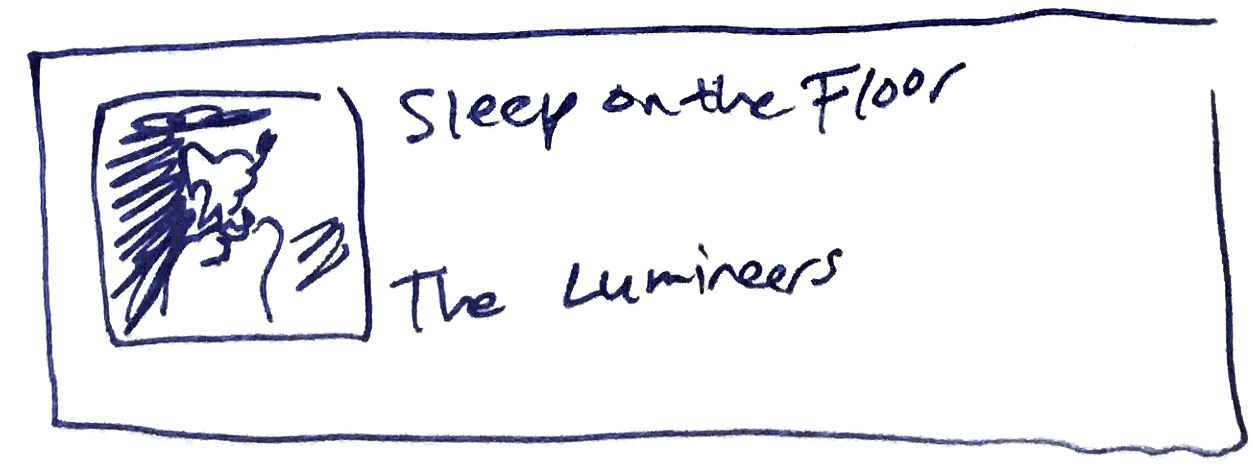 Sleep on the Floor
The Lumineers